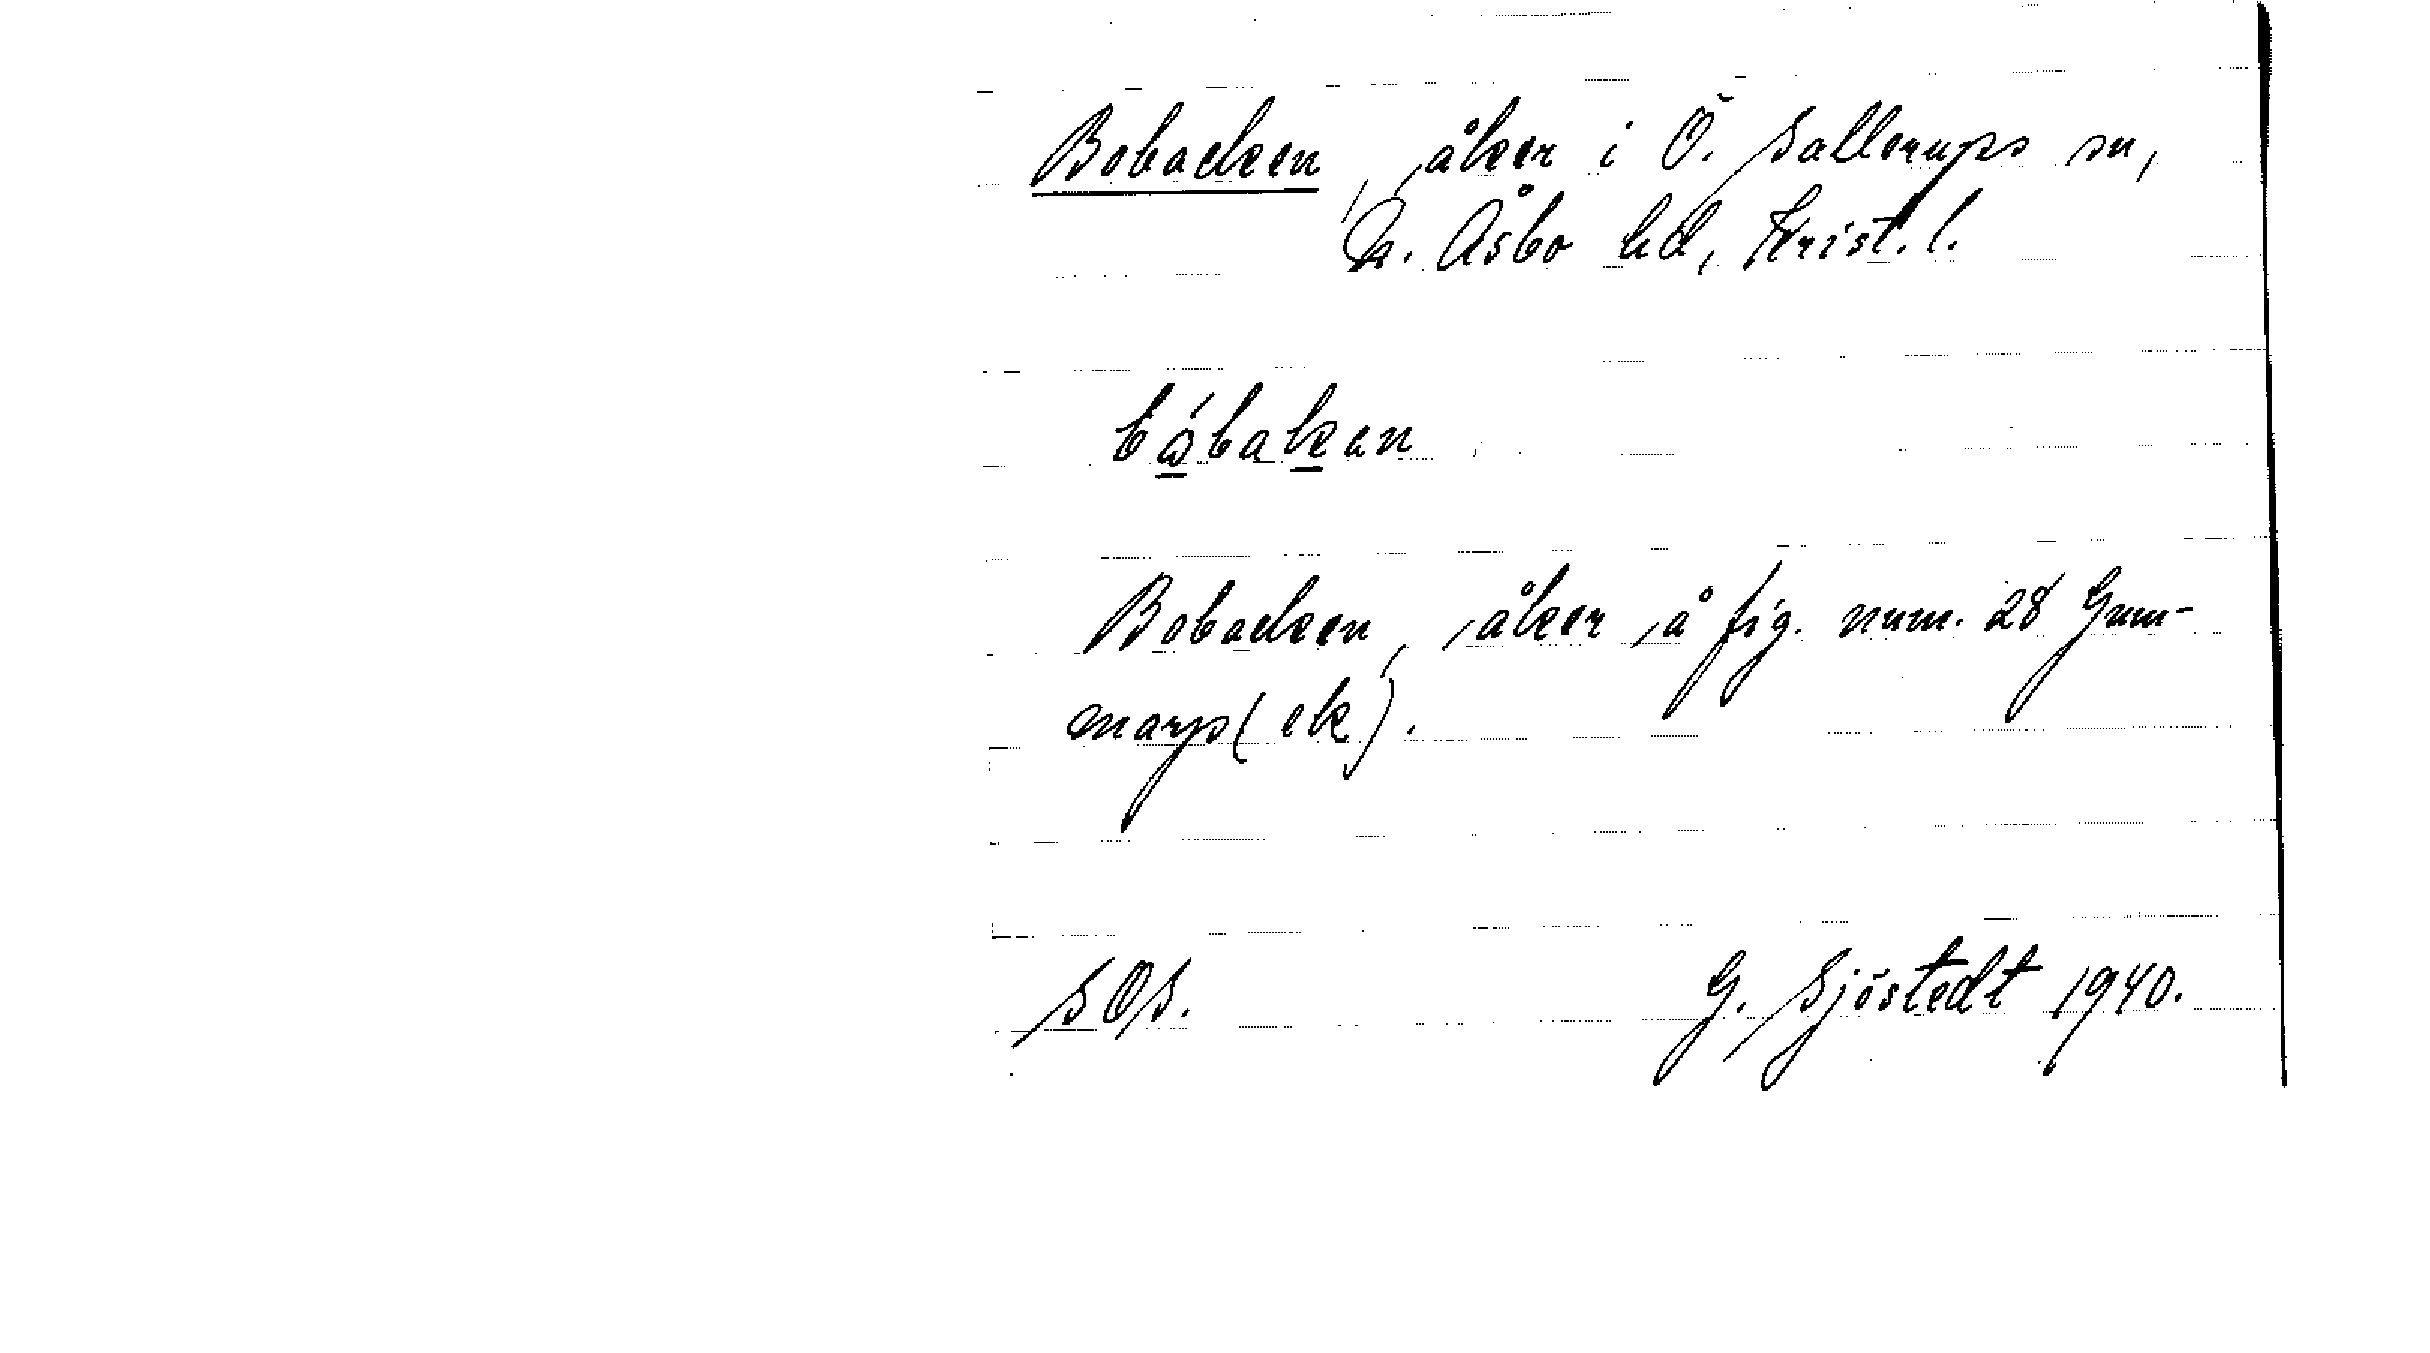 Bobacken, åker i Ö. Sallerups sn,
N. Åsbo hd, Krist. l.
bóbaken
Bobacken, åker å fig. num. 28 Gum-
marp (ek).
SOS.
G. Sjöstedt 1940.